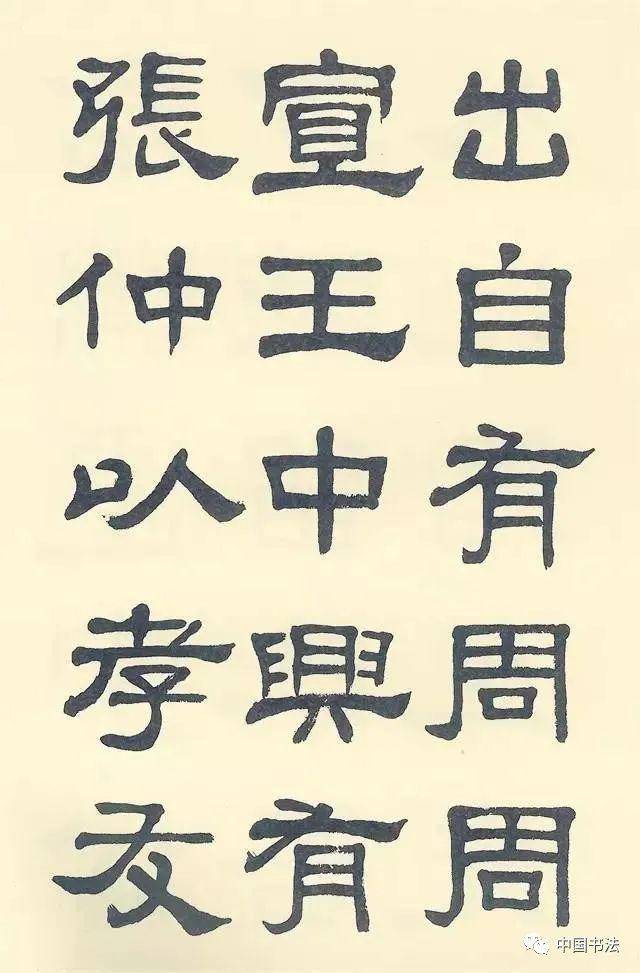 出自有周周
宣王中興有
張仲以孝友
中国书法